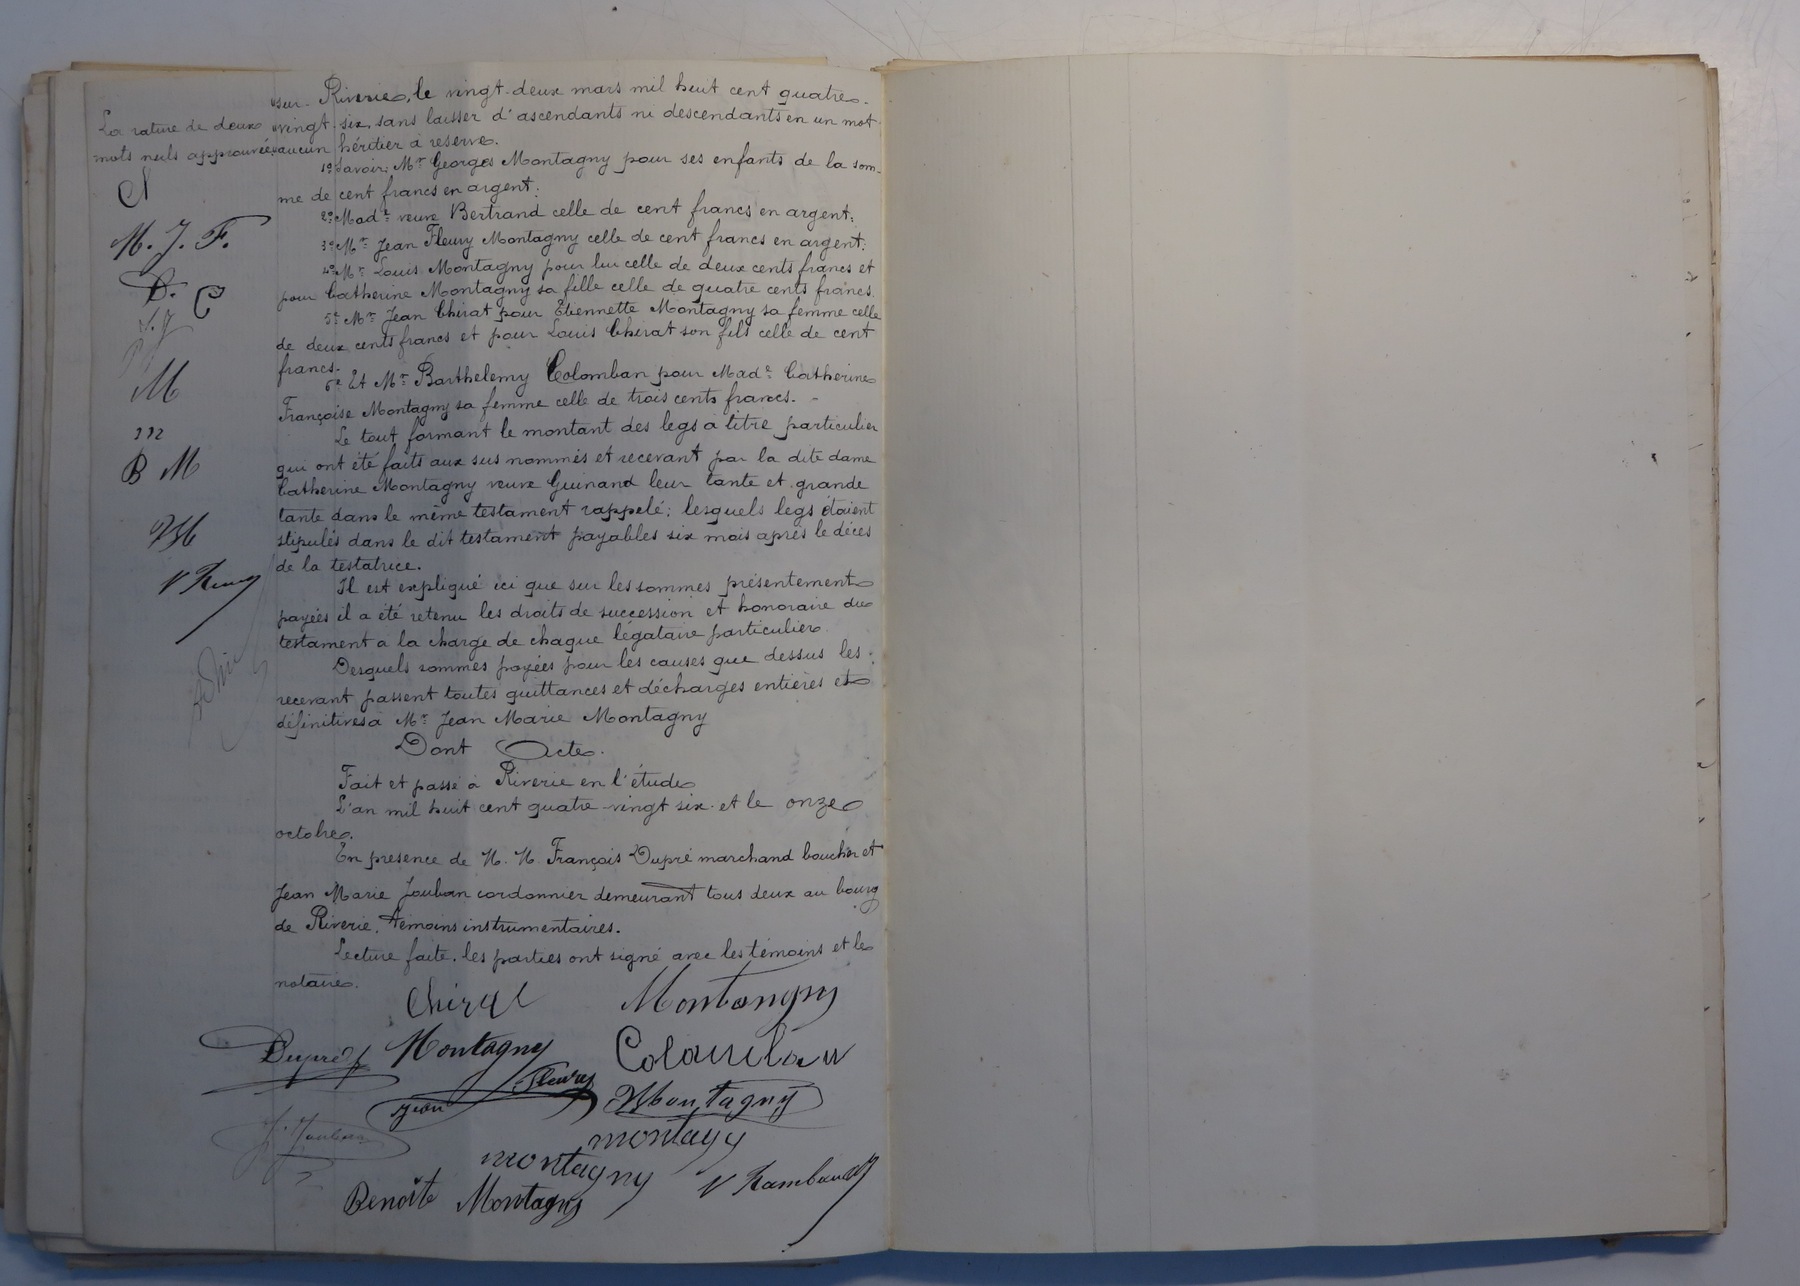 sur Riverie, le vingt-deux mars mil huit cent quatre-
vingt-six, sans laisser d'ascendants ni descendants en un mot
aucun héritier à réserve.
La rature de deux
mots nuls approuvée
1º Savoir: Mr Georges Montagny pour ses enfants de la som-
me de cent francs en argent;
2º Made veuve Bertrand celle de cent francs en argent;
3º Mr Jean Fleury Montagny celle de cent francs en argent;
4º Mr Louis Montagny pour lui celle de deux cents francs et
pour Catherine Montagny sa fille celle de quatre cents francs.
5º Mr Jean Chirat pour Etiennette Montagny sa femme celle
de deux cents francs et pour Louis Chirat son fils celle de cent
francs.
6º Et Mr Barthelemy Colomban pour Made Catherine
Françoise Montagny sa femme celle de trois cents francs.-
Le tout formant le montant des legs à titre particulier
qui ont été faits aux sus nommés et recevant par la dite dame
Catherine Montagny veuve Guinand leur tante et grande
tante dans le même testament rappelé; lesquels legs étaient
stipulés dans le dit testament payables six mois après le décès
de la testatrice.
Il est expliqué ici que sur les sommes présentement
payées il a été retenu les droits de succession et honoraire du
testament a la charge de chaque légataire particulier.
Desquels sommes payées pour les causes que dessus les
recevant passent toutes quittances et décharges entières et
définitives à Mr Jean Marie Montagny
Dont Acte.
Fait et passé à Riverie en l'étude
L'an mil huit cent quatre-vingt six et le onze
octobre.
En presence de M. M. François Dupré marchand boucher et
Jean Marie Jouban cordonnier demeurant tous deux au bourg
de Riverie, témoins instrumentaires.
Lecture faite, les parties ont signé avec les témoins et le
notaire.
M. J. F.
D. C
M
m
B M
Chirat Montangny
Dupré Montagny Colomban
Jean Fleury Montagny
J. Jouban montagy
montagny
Benoîte Montagny V Rambaud